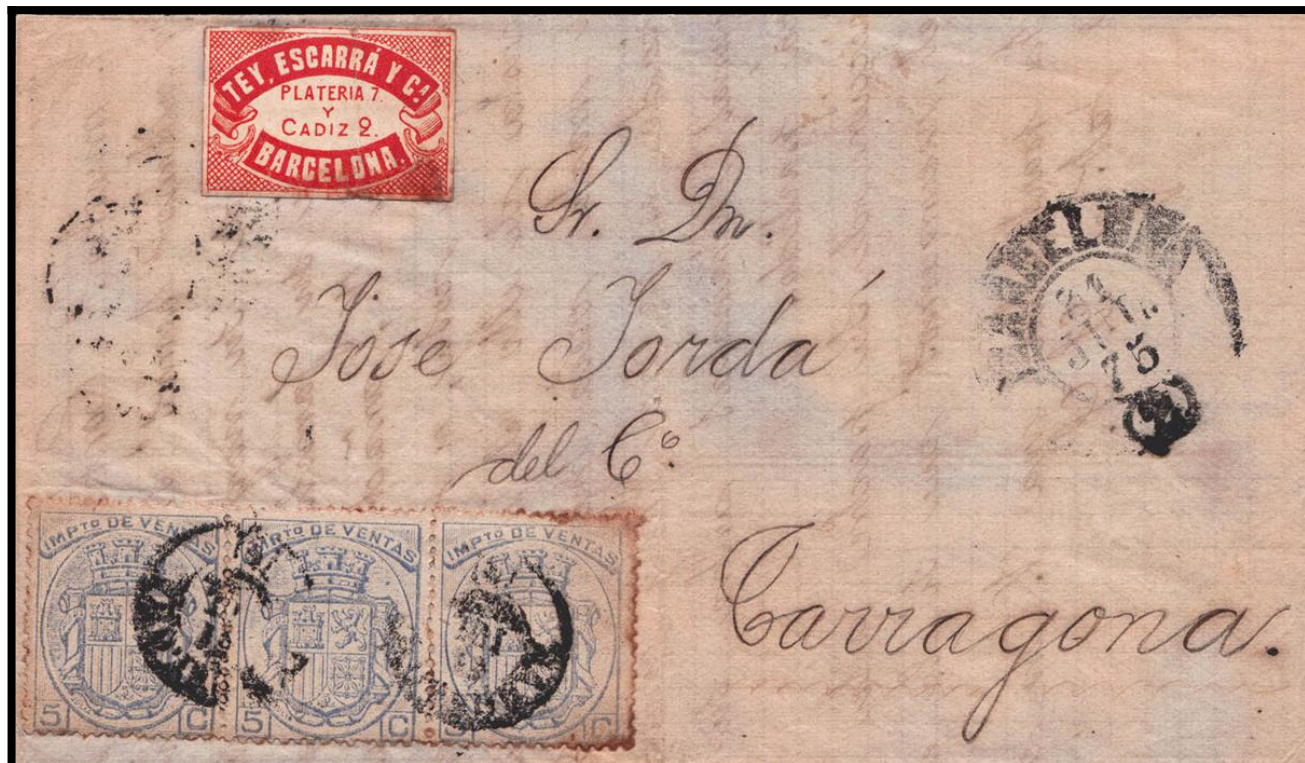 TEY, ESCARRÁ Y Cª
PLATERIA 7.
Y
CADIZ 2.
BARCELONA.
Sr. Dn.
Jose Jordá
del Cº.
Tarragona.
BARCELONA
75
IMPTO DE VENTAS
5 C
IMPTO DE VENTAS
5 C
IMPTO DE VENTAS
5 C